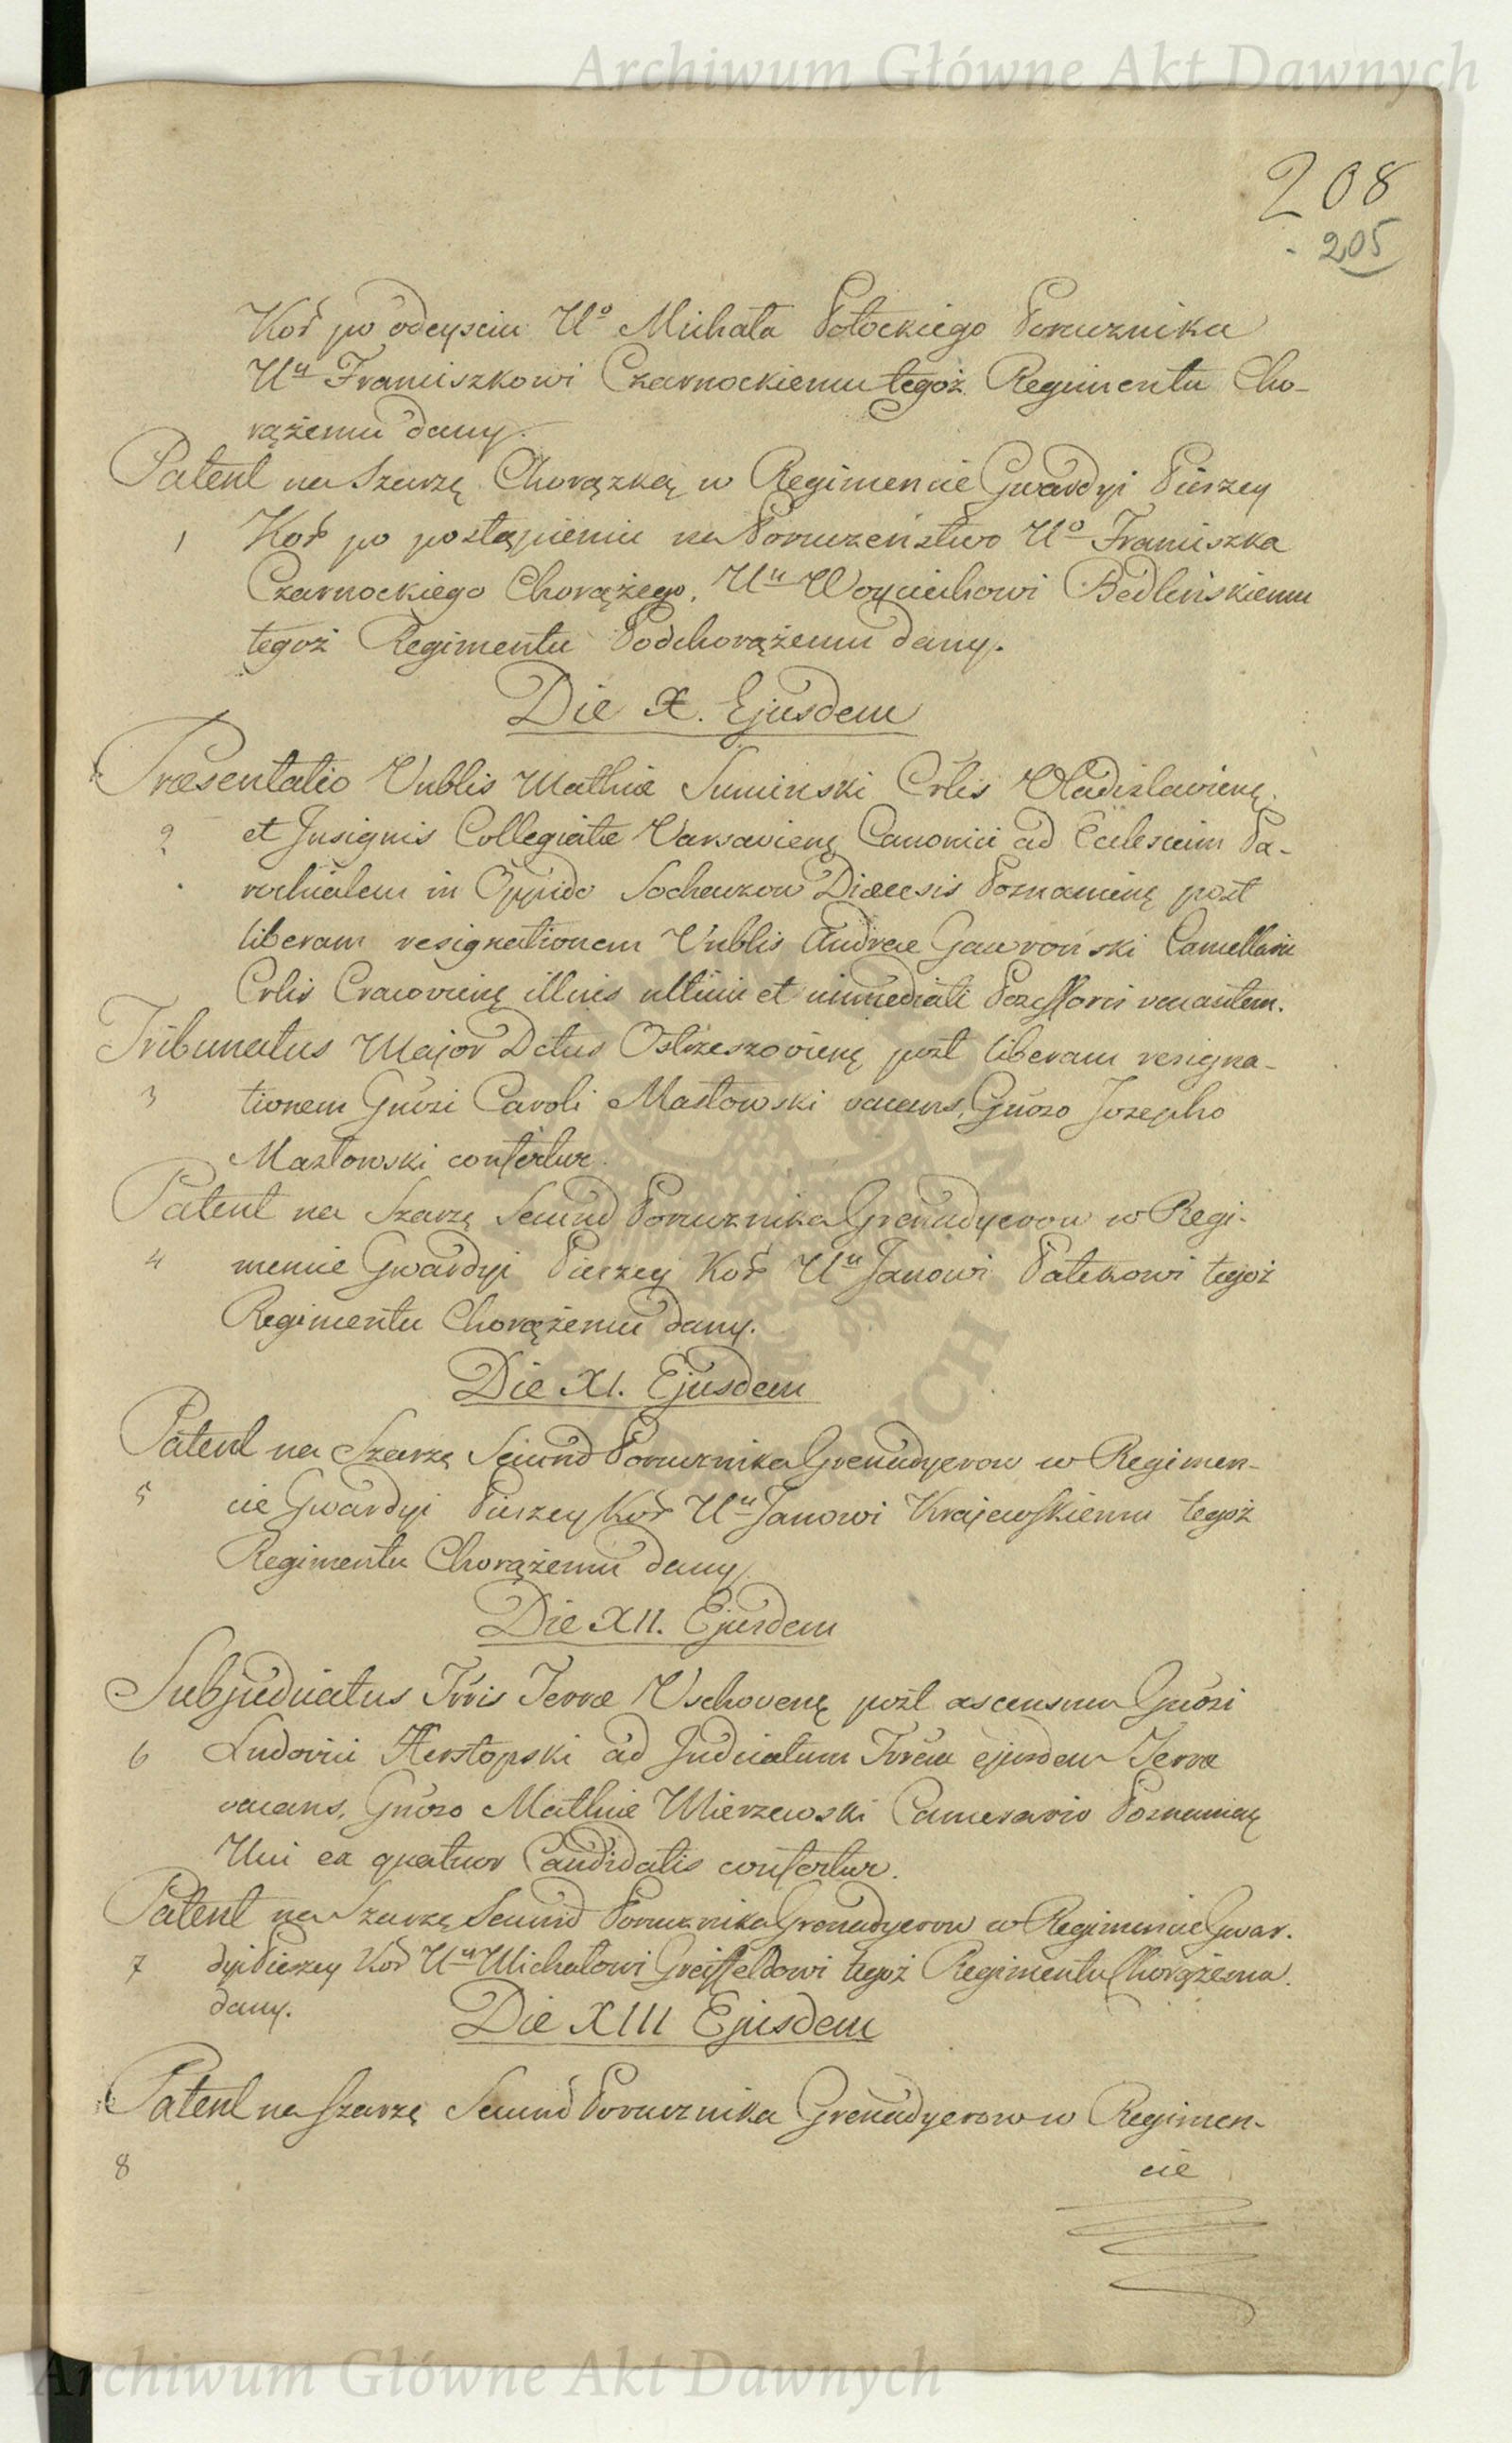 Archiwum Główne Akt Dawnych
208
205
Kor po odeysciu Uo Michała Potockiego Porucznika
Uu Franciszkowi Czarnockiemu tegoż Regimentu Cho-
rążemu dany.
Patent na Szarzę Chorązką w Regimencie Gwardyi Pieszey
1 Kor po postąpieniu na Poruczeństwo Uo Franciszka
Czarnockiego Chorążego, Uu Woyciechowi Bedlińskiemu
tegoż Regimentu Podchorążemu dany.
Die X. Ejusdem
Præsentatio Vnblis Mathiæ Suminski Crlis Vladislavienę
2 et Insignis Collegiatæ Varsavienę Canonici ad Ecclesiam Pa-
rochialem in Oppido Sochaczow Diæcesis Posnanienę post
liberam resignationem Vnblis Andreæ Gawroński Cancellarii
Crlis Cracovienę illius ultimi et immediati Possessoris vacantem.
Tribunatus Major Dctus Ostrzeszovienę post liberam resigna-
3 tionem Gnrosi Caroli Masłowski vacans, Gnroso Josepho
Masłowski confertur.
Patent na Szarzę Secund Porucznika Grenadyerow w Regi-
4 mencie Gwardyi Pieszey Kor Uu Janowi Patekowi tegoż
Regimentu Chorążemu dany.
Die XI. Ejusdem
Patent na Szarzę Secund Porucznika Grenadyerow w Regimen-
5 cie Gwardyi Pieszey Kor Uu Janowi Krajewskiemu tegoż
Regimentu Chorążemu dany.
Die XII. Ejusdem
Subjudicatus Trris Terræ Vschovenę post ascensum Gnrosi
6 Ludovici Kerstopski ad Judicatum Trrem ejusdem Terræ
vacans, Gnroso Mathiæ Mierzewski Camerario Posnanienę
Uni ex quatuor Candidatis confertur.
Patent na Szarzę Secund Porucznika Grenadyerow w Regimencie Gwar-
7 dyi Pieszey Kor Uu Michałowi Greiffeldowi tegoż Regimentu Chorążemu
dany.
Die XIII Ejusdem
Patent na Szarzę Secund Porucznika Grenadyerow w Regimen-
8 cie
Archiwum Główne Akt Dawnych